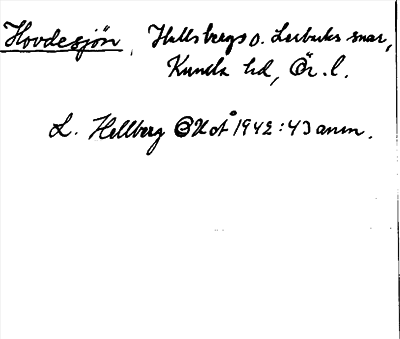 Hovdesjön, Hallsbergs o. Lerbäcks snar,
Kumla hd, Ör. l.
L. Hellberg OKoÅ 1942:43 anm.